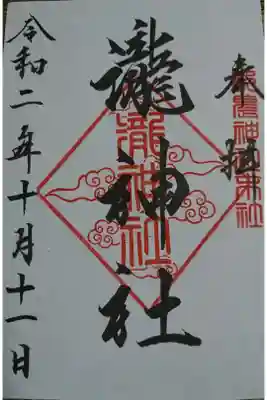 奉拝
瀧神社
瀧神社
令和二年十月十一日